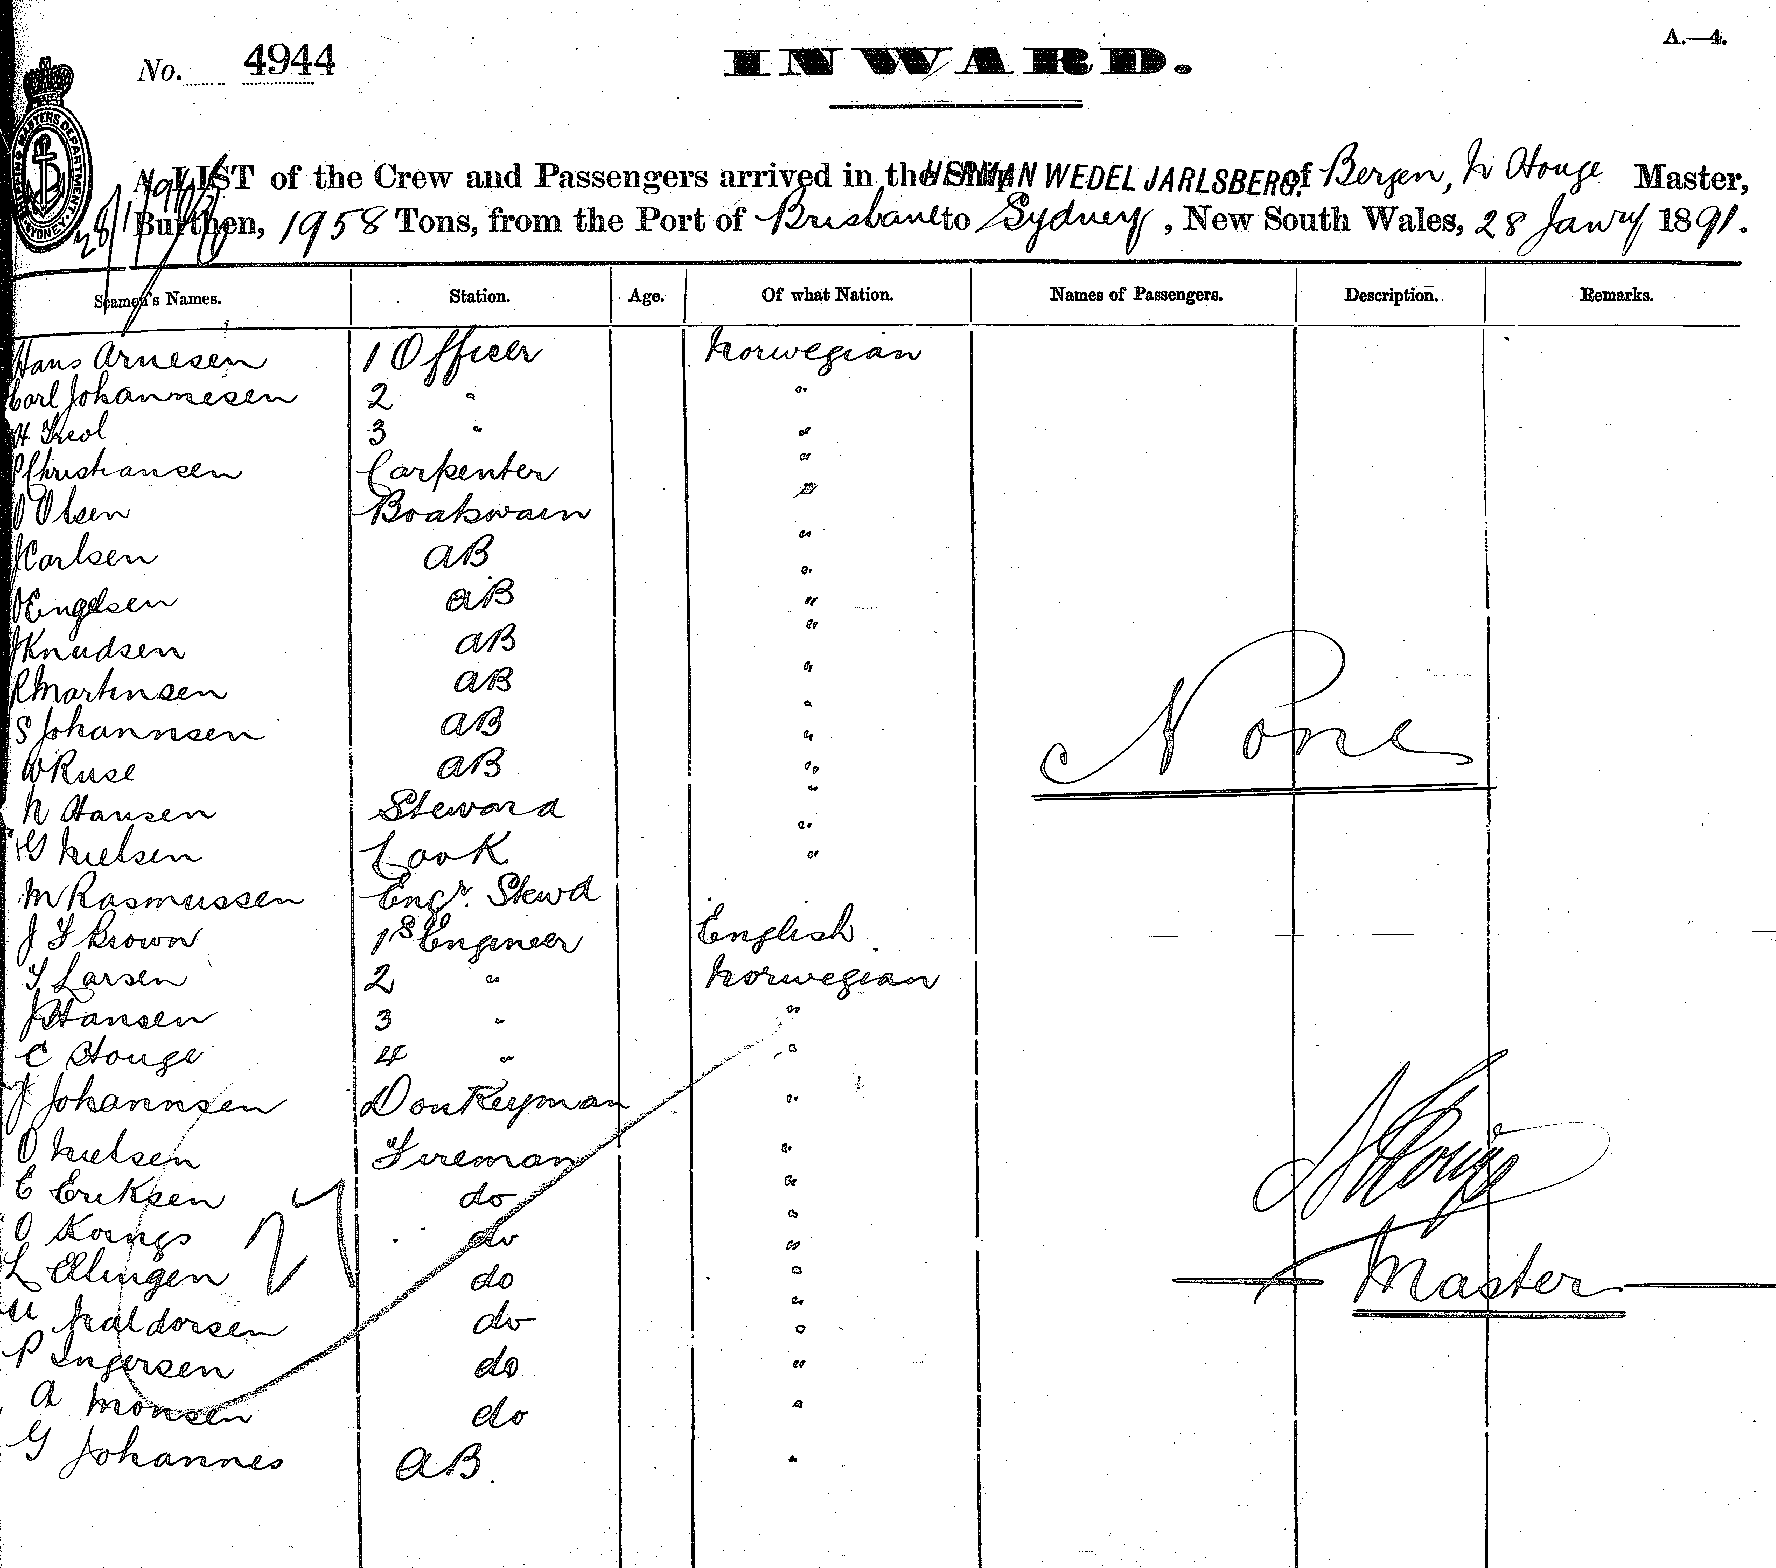 A.—4.
No. 4944
INWARD.
LIST of the Crew and Passengers arrived in the HERMAN WEDEL JARLSBERG of Bergen, N Houge Master,
Burthen, 1958 Tons, from the Port of Brisbane to Sydney, New South Wales, 28 Jany 1891.
Seamen's Names. Station. Age. Of what Nation. Names of Passengers. Description. Remarks.
Hans Arnesen 1 Officer Norwegian
Carl Johannesen 2 "
H 3 "
P Christiansen Carpenter "
O Olsen Boatswain "
J Carlsen AB "
Engelsen AB "
J Knudsen AB "
R Martinsen AB "
S Johannsen AB "
W Ruse AB "
None
N Hansen Steward "
Nielsen Cook "
M Rasmussen Engr. Stewd
J F Brown 1st Engineer English
T Larsen 2 " Norwegian
J Hansen 3 " "
C Houge 4 " "
J Johannsen Donkeyman "
O Nielsen Fireman "
N Houge
E Eriksen do "
O Konugs do "
L Ellingen do "
Master
Haldorsen do "
P Ingersen do "
A Monsen do "
G Johannes AB "